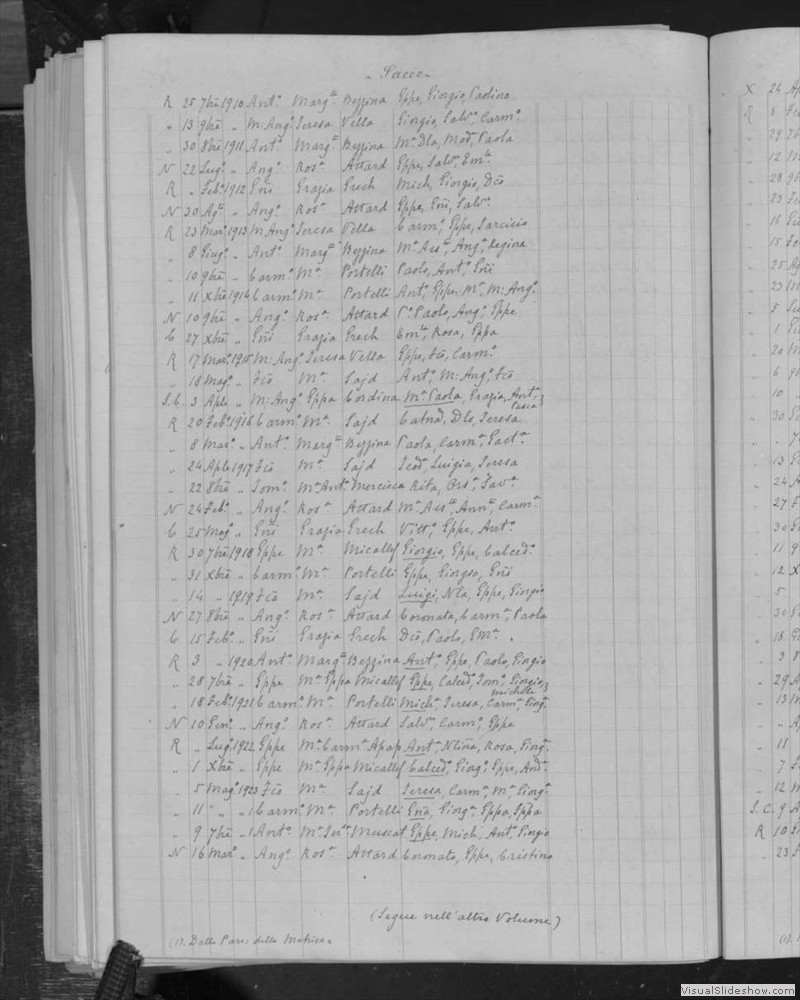 - Sacco -
R 25 7bre 1910 Anto. Marga. Bezzina Gppe, Giorgio, Paolino
" 13 9bre " M: Ango. Teresa Vella Giorgio, Salvo, Carmo.
" 30 8bre 1911 Anto. Marga. Bezzina Ma. Dla, Moda, Paola
N 22 Lugo. " Ango. Rosa. Attard Gppe, Salvo, Emle.
R " Febo. 1912 Gñi Grazia Grech Mich, Giorgio, Dco
N 30 Ago. " Ango. Rosa. Attard Gppe, Gñi, Salvo.
R 23 Mar. 1913 M: Ango. Teresa Vella Carmo, Gppe, Tarcisio
" 8 Giugo. " Anto. Marga. Bezzina Ma. Assa, Anga, Regina
" 10 9bre " Carmo. Ma. Portelli Paolo, Anto, Gñi
" 11 Xbre 1914 Carmo. Ma. Portelli Anto, Gppe. Ma, M: Ango.
N 10 9bre " Ango. Rosa. Attard Po. Paolo, Ango, Gppe
C 27 Xbre " Gñi Grazia Grech Emla, Rosa, Gppa
R 17 Mar. 1915 M: Ango. Teresa Vella Gppe, Fco, Carmo.
" 18 Mago. " Fco Ma. Sajd Anto, M: Ango, Fco
S.C. 3 Aple " M: Ango. Gppa Cordina Ma. Paola, Grazia, Anta,
Pasca
R 20 Febo. 1916 Carmo. Ma. Sajd Catna, Dlo, Teresa
" 8 Mar. " Anto. Marga. Bezzina Paola, Carma, Gaeta.
" 24 Aple 1917 Fco Ma. Sajd Teoda, Luigia, Teresa
" 22 8bre " Tomo. Ma. Anta. Mercieca Rita, Orsa, Sava.
N 24 Febo. " Ango. Rosa. Attard Ma. Assa, Anna, Carma.
C 25 Mago. " Gñi Grazia Grech Vitto, Gppe, Anto.
R 30 7bre 1918 Gppe Ma. Micallef Giorgio, Gppe, Calcedo.
" 31 Xbre " Carmo. Ma. Portelli Gppe, Giorgio, Gñi
" 14 " 1919 Fco Ma. Sajd Luigi, Nla, Gppe, Giorgio
N 27 8bre " Ango. Rosa. Attard Coronata, Carma, Paola
C 15 Febo. " Gñi Grazia Grech Dco, Paolo, Ema.
R 3 " 1920 Anto. Marga. Bezzina Anto, Gppe, Paolo, Giorgio
" 28 7bre " Gppe Ma. Gppa Micallef Gppe, Calcedo, Tomo, Giorgio,
Michele
" 18 Febo. 1921 Carmo. Ma. Portelli Micha, Teresa, Carma, Giorga.
N 10 Genn. " Ango. Rosa. Attard Salvo, Carmo, Gppe
R " Lugo. 1922 Gppe Ma. Carma. Apap Anta, Ntina, Rosa, Giorga.
" 1 Xbre " Gppe Ma. Gppa Micallef Calcedo, Giorgo, Gppe, Anda.
" 5 Mago. 1923 Fco Ma. Sajd Teresa, Carma, Ma. Giorga.
" 11 " " Carmo. Ma. Portelli Gña, Giorga, Gppa, Gppa
" 9 7bre " Anto. Ma. Tera. Muscat Gppe, Mich, Anto, Giorgio
N 16 Mar. " Ango. Rosa. Attard Coronato, Gppe, Cristino
(Segue nell'altro Volume)
(1). Dalla Parr. della Matrice.
VisualSlideshow.com